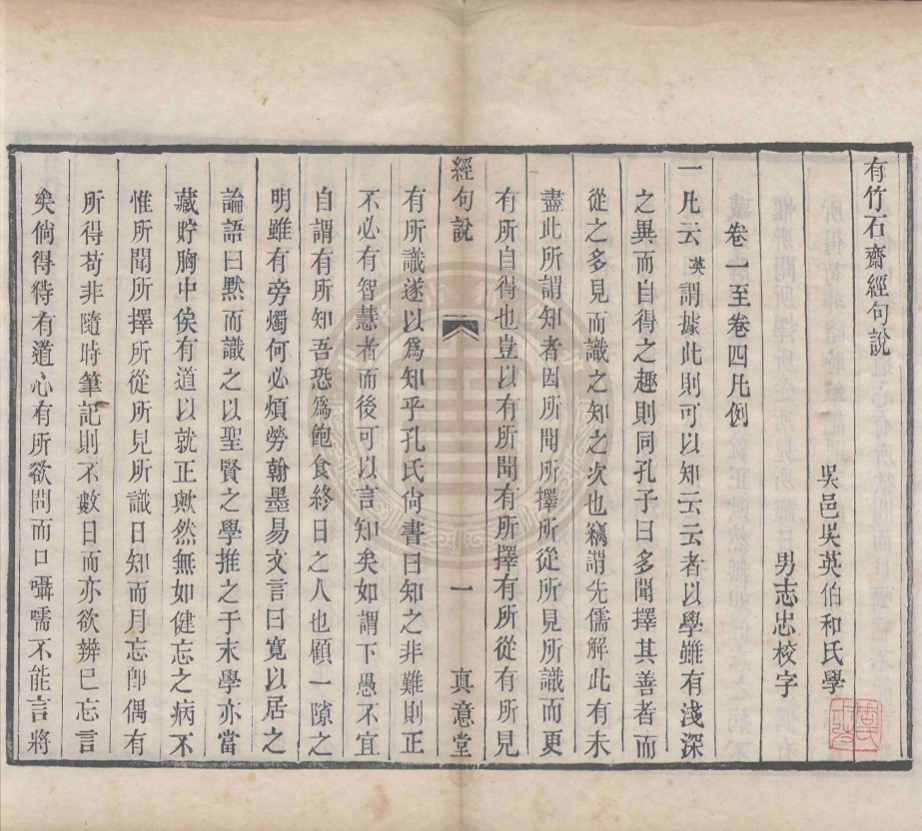 有竹石齋經句說
吳邑吳英伯和氏學
男志忠校字
卷一至卷四凡例
一凡云英謂據此則可以知云云者以學雖有淺深
之異而自得之趣則同孔子曰多聞擇其善者而
從之多見而識之知之次也竊謂先儒解此有未
盡此所謂知者因所聞所擇所從所見所識而更
有所自得也豈以有所聞有所擇有所從有所見
經句說 一 真意堂
有所識遂以爲知乎孔氏尙書曰知之非難則正
不必有智慧者而後可以言知矣如謂下愚不宜
自謂有所知吾恐爲飽食終日之人也顧一隙之
明雖有旁燭何必煩勞翰墨易文言曰寬以居之
論語曰默而識之以聖賢之學推之于末學亦當
藏貯胸中俟有道以就正歟然無如健忘之病不
惟所聞所擇所從所見所識日知而月忘卽偶有
所得苟非隨時筆記則不數日而亦欲辨已忘言
矣倘得待有道心有所欲問而口囁嚅不能言將